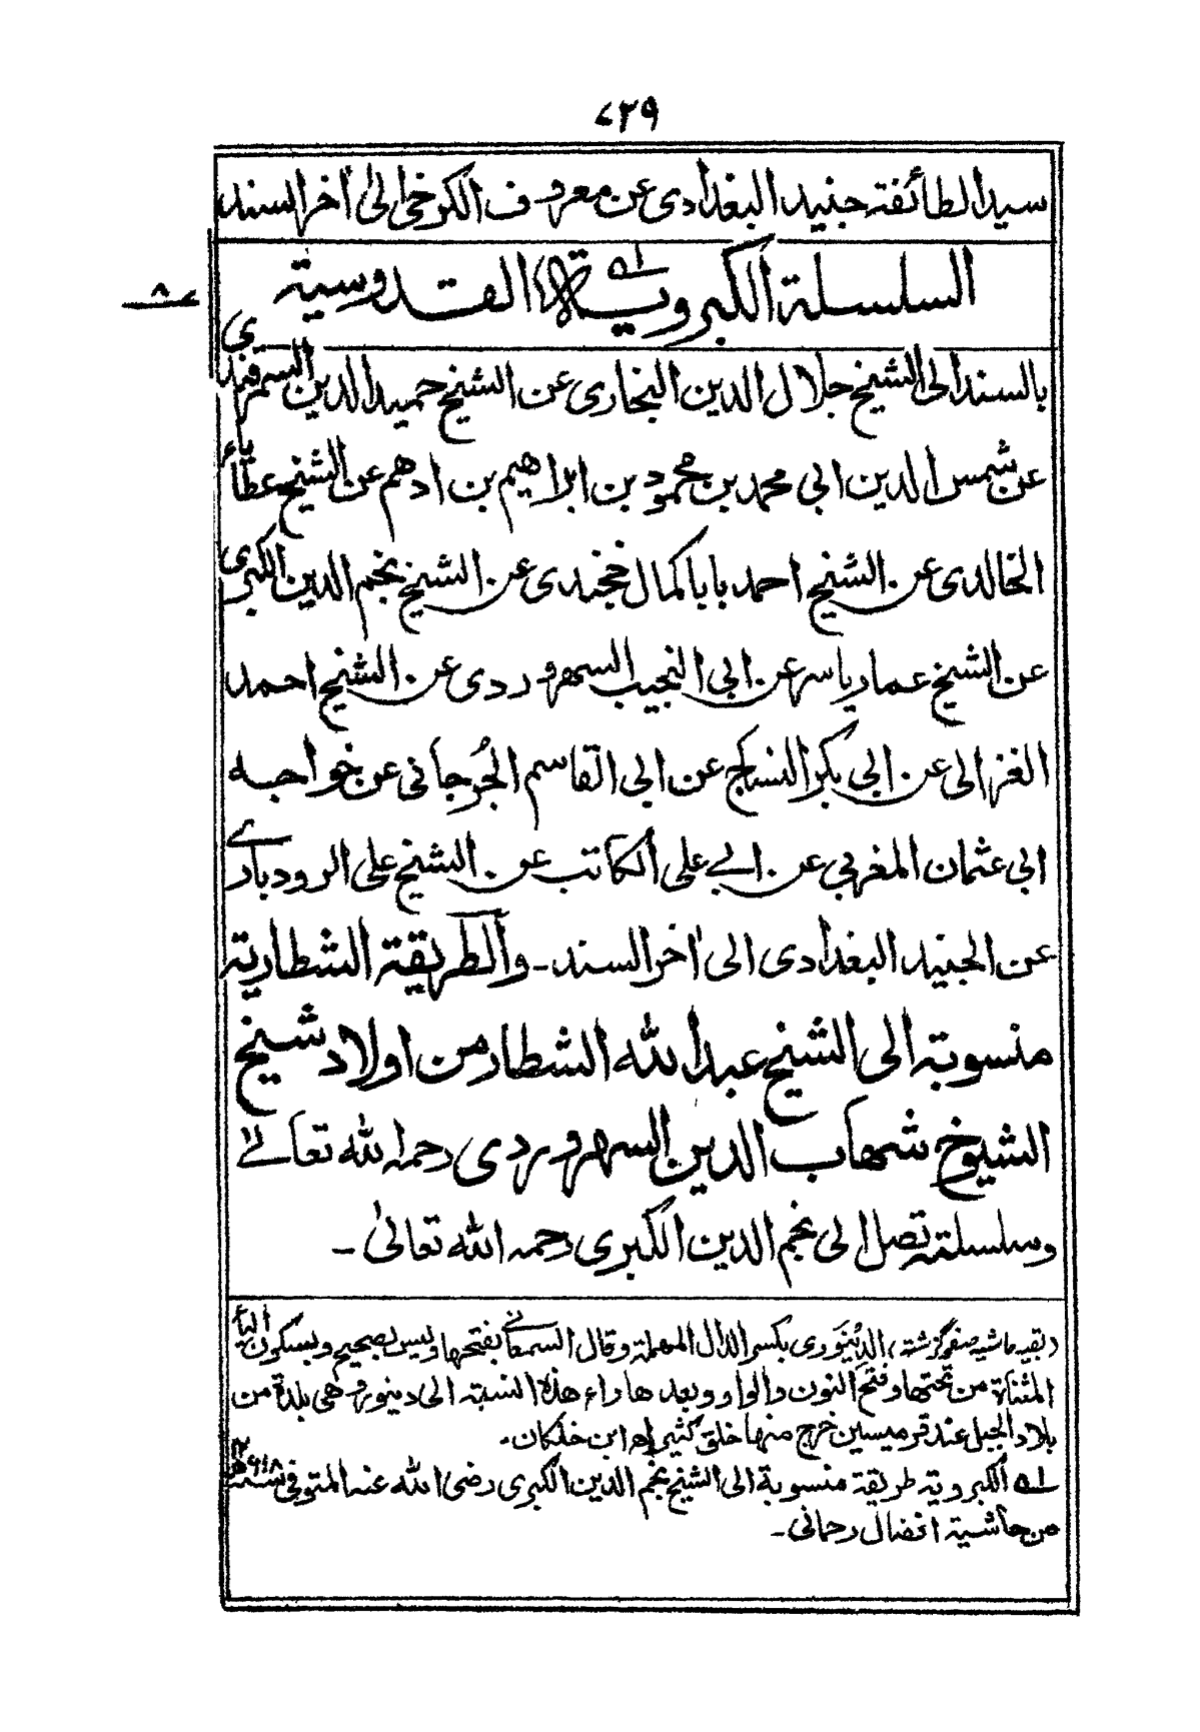 ۷۲۹
سيد الطائفة جنيد البغدادى عن معروف الكرخى الىٰ اٰخر السند
السلسلة الكبروية القدوسية
۸
بالسند الى الشيخ جلال الدين البخارى عن الشيخ حميد الدين السمرقندى
عن شمس الدين ابى محمد بن محمود بن ابراهيم بن ادهم عن الشيخ عطاياء
الخالدى عن الشيخ احمد بابا كمال خجندى عن الشيخ نجم الدين الكبرى
عن الشيخ عمار ياسر عن ابى النجيب السهروردى عن الشيخ احمد
الغزالى عن ابى بكر النساج عن ابى القاسم الجُرجانى عن خواجه
ابى عثمان المغربى عن ابے على الكاتب عن الشيخ على الرودبارے
عن الجنيد البغدادى الى اٰخر السند ـ والطريقة الشطارية
منسوبة الى الشيخ عبد الله الشطار من اولاد شيخ
الشيوخ شهاب الدين السهروردى رحمه الله تعالےٰ
وسلسلته تصل الى نجم الدين الكبرى رحمه الله تعالىٰ ـ
(بقيه حاشيه صفحه گزشته) الدِّيْنَوَرى بكسر الدال المهملة وقال السمعانے بفتحها وليس بصحيح وبسكون الياء
المثناة من تحتها وفتح النون والواو وبعدها راء هذه النسبة الى دينور وهى بلدة من
بلاد الجبل عند قرميسين خرج منها خلق كثير اھ ابن خلكان ـ
لے الكبروية طريقة منسوبة الى الشيخ نجم الدين الكبرى رضى الله عنه المتوفى سنة ۶۱۸ھ ۱۲
من حاشية افضال رحمانى ـ